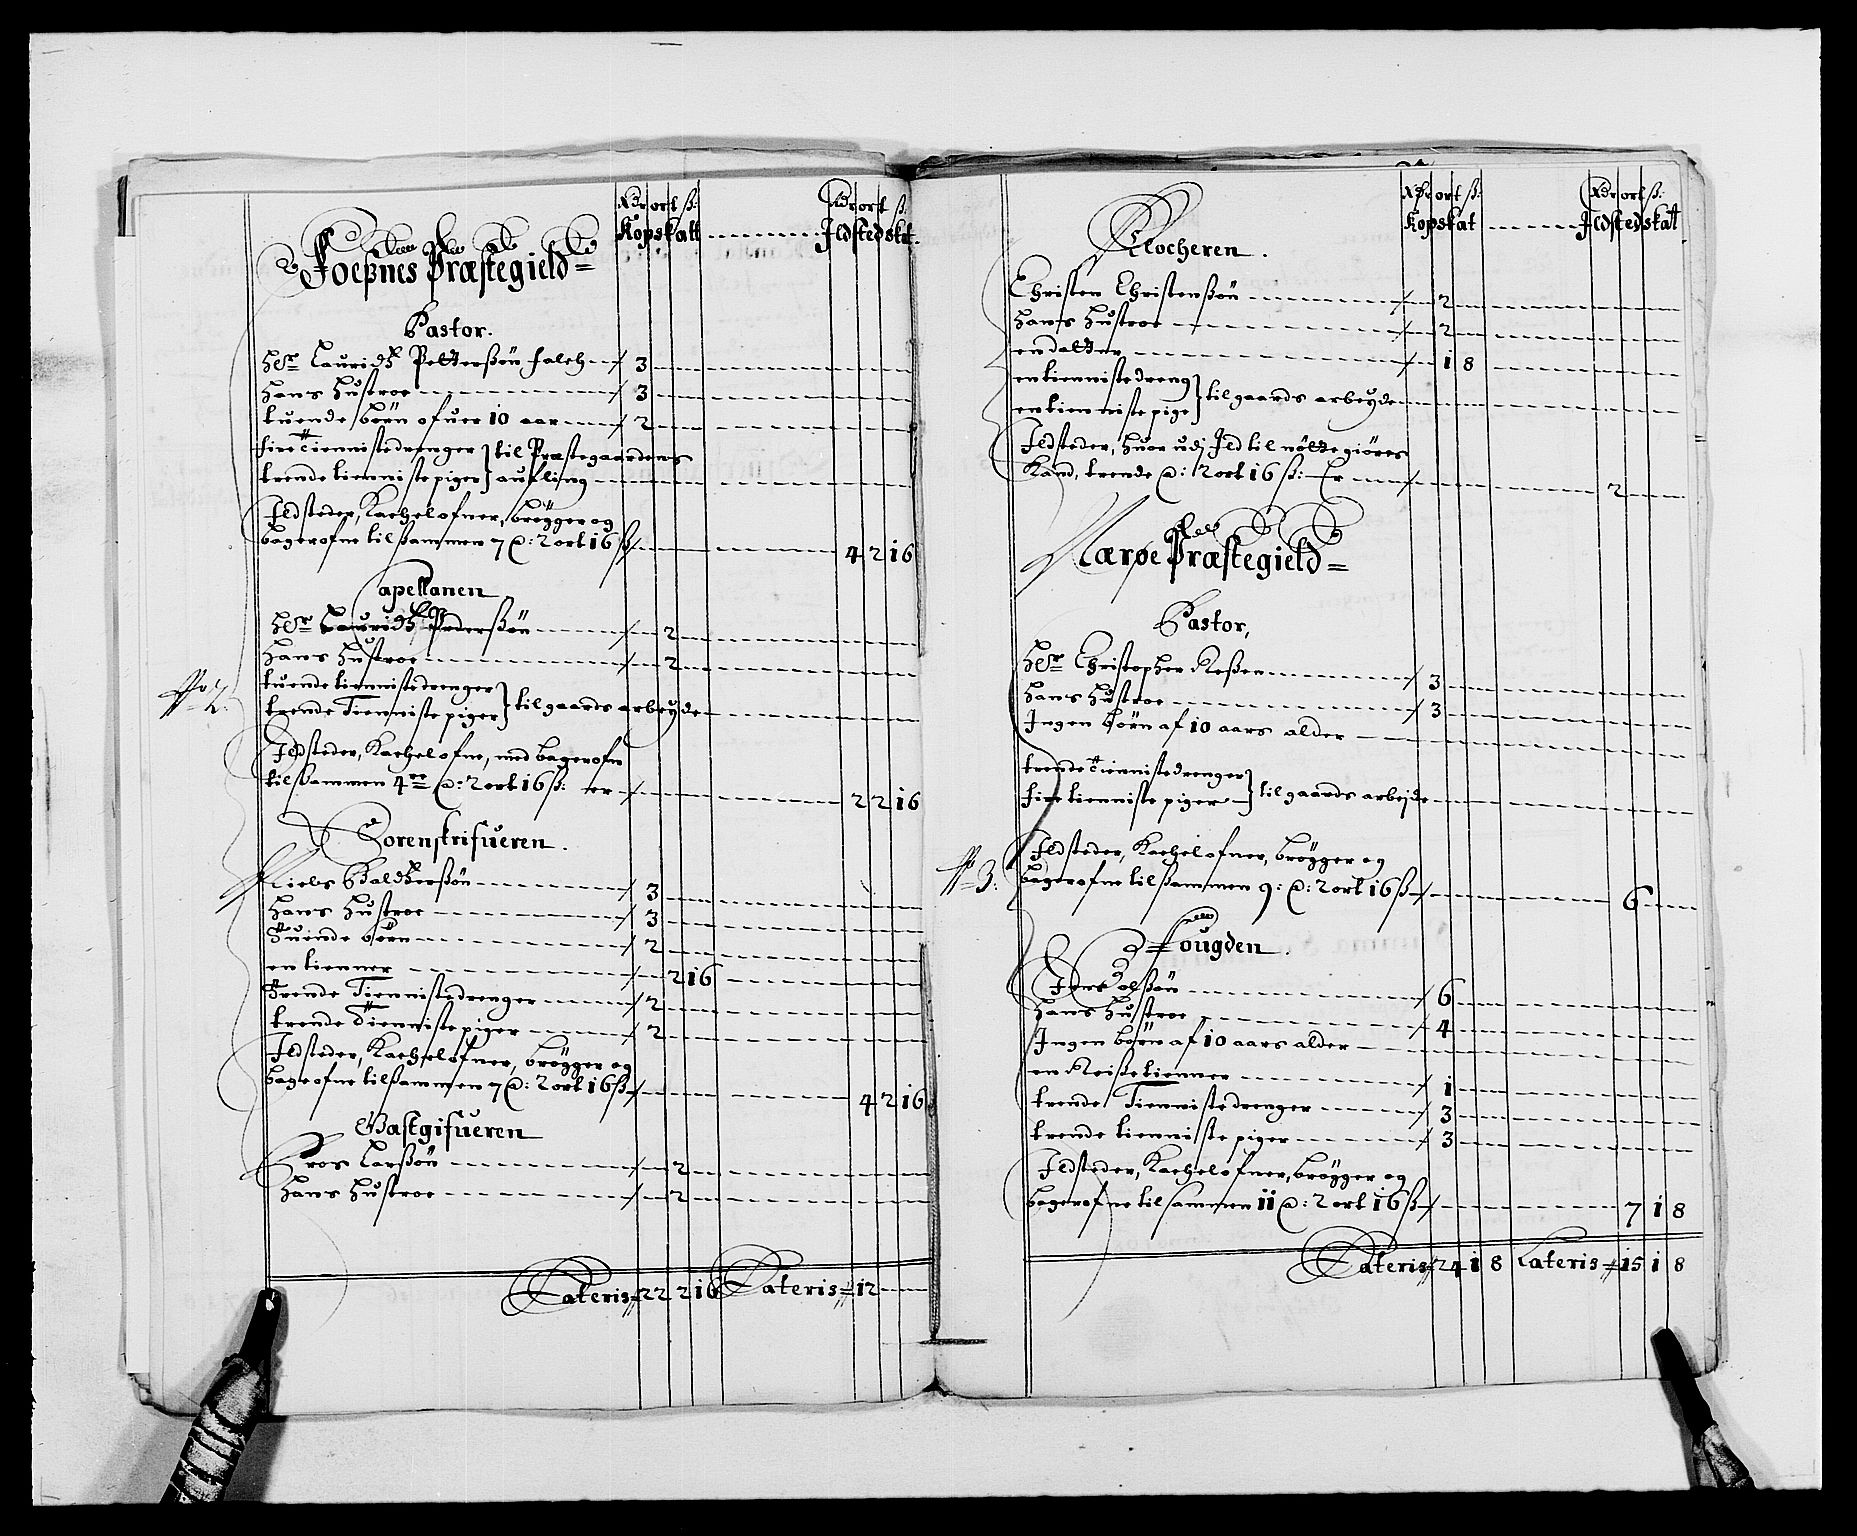 Rdr ort ß: Rdr ort ß:
Kopskatt Ildstedskat
Foeßnes Præstegield
Pastor.
Hr Lauridtz Pettersøn Falch 3
hans hustroe 3
tuende børn ofuer 10 aar 2
fire tiennistedrenger } til Præstegaardens
trende tienniste piger } aufling
Ildsteder, Kachelofner, brøgger og
bagerofne tilsammen 7 a: 2 ort 16 ß 4 2 16
Capellanen
Hr Lauridtz Pedersøn 2
hans hustroe 2
No 2.
tuende tiennistedrenger } til gaards arbeyde
trende Tienniste piger }
Ildsteder, Kachelofne, med bagerofn
tilsammen 4re a: 2 ort 16 ß: er 2 2 16
Sorenskrifueren.
Niels Baldtzersøn 3
hans hustroe 3
Tuende børn 2
en tienner 2 16
Trende Tiennistedrenger 2
trende Tienniste piger 2
Ildsteder, Kachelofner, brøgger og
bagerofne tilsammen 7 a: 2 ort 16 ß 4 2 16
Gastgifueren
Larsøn 2
hans hustroe 2
Lateris 22 2 16 Lateris 12
Rdr ort ß: Rdr ort ß:
Kopskat Ildstedskatt
Klocheren.
Christen Christensøn 2
hans hustroe 2
en datter 1 8
en tiennistedreng } til gaards arbeyde
en tienniste pige }
Ildsteder, huor udj Ild til nøtte giøres
Kand, trende a: 2 ort 16 ß: Er 2
Nærøe Præstegield
Pastor,
Hr Christopher 3
hans hustroe 3
Ingen børn af 10 aars alder
trende tiennistedrenger } til gaards arbejde
fire tienniste piger }
No 3:
Ildsteder, Kachelofner, brøgger og
bagerofne tilsammen 9: a: 2 ort 16 ß 6
Fougden.
Olsøn 6
hans hustroe 4
Ingen børn af 10 aars alder
en Reisetienner 1
trende Tiennistedrenger 3
trende tienniste piger 3
Ildsteder, Kachelofner, brøgger og
bagerofne tilsammen 11 a: 2 ort 16 ß 7 1 8
Lateris 24 1 8 Lateris 15 1 8